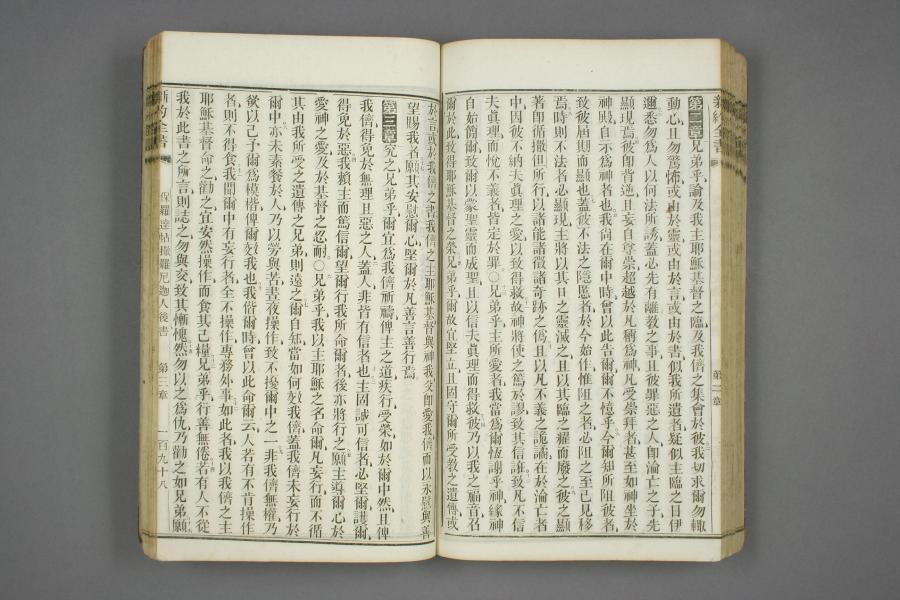 新約全書
第二章
第二章兄弟乎論及我主耶穌基督之臨及我儕之集會於彼我切求爾勿輙
動心且勿驚怖或由於靈或由於言或由於書似我所遣者疑似主臨之日伊
邇悉勿為人以何法所誘蓋必先有離教之事且彼罪惡之人卽淪亡之子先
顯現焉彼卽背逆且妄自尊崇超越於凡稱為神凡受崇拜者甚至如神坐於
神殿自示為神者也我尙在爾中時曾以此告爾爾不憶乎今爾知所阻彼者
致彼屆期而顯也蓋彼不法之隱慝者於今始作惟阻之者必阻之至己見移
焉時則不法者必顯現主將以其口之靈滅之且以其臨之耀而廢之彼之顯
著卽循撒但所行以諸能諸徵諸奇跡之僞且以凡不義之詭譎在於淪亡者
中因彼不納夫真理之愛以致得救故神將使之篤於謬致其信誑致凡不信
夫真理而悅不義者皆定於罪○兄弟乎主所愛者我當為爾恆謝乎神緣神
自始簡爾致爾以蒙聖靈而成聖且以信夫真理而得救彼乃以我之福音召
爾於此致得耶穌基督之榮兄弟乎爾故宜堅立且固守爾所受教之遺傳或
於言或於我儕之書我儕之主耶穌基督與神我父卽愛我儕而以永慰與善
望賜我者願其安慰爾心堅爾於凡善言善行焉
第三章究之兄弟乎爾宜為我儕祈禱俾主之道疾行受榮如於爾中然且俾
我儕得免於無理且惡之人蓋人非皆有信者也主固誠可信者必堅爾護爾
得免於惡我賴主而篤信爾望爾行我所命爾者後亦將行之願主導爾心於
愛神之愛及於基督之忍耐○兄弟乎我以主耶穌之名命爾凡妄行而不循
其由我所受之遺傳之兄弟則遠之爾自知當如何效我儕蓋我儕未妄行於
爾中亦未素餐於人乃以勞與苦晝夜操作致不擾爾中之一非我儕無權乃
欲以己予爾為模楷俾爾效我也我偕爾時曾以此命爾云人若有不肯操作
者則不得食我聞爾中有妄行者全不操作專務外事如此者我以我儕之主
耶穌基督命之勸之宜安然操作而食其己糧兄弟乎行善無倦若有人不從
我於此書之所言則誌之勿與交致其慚愧然勿以之為仇乃勸之如兄弟願
新約全書
保羅達帖撒羅尼迦人後書
第三章
一百九十八